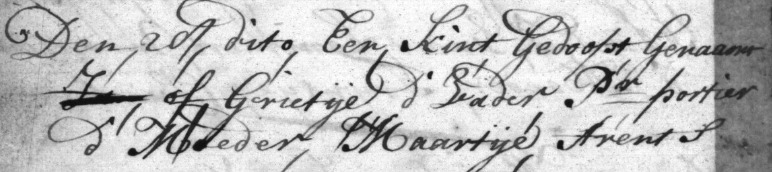 Den 20st, dito, Een, Kint Gedoopt Genaamt
of Grietije d' Vader Pr portier
d' Moeder, Maartije Arents